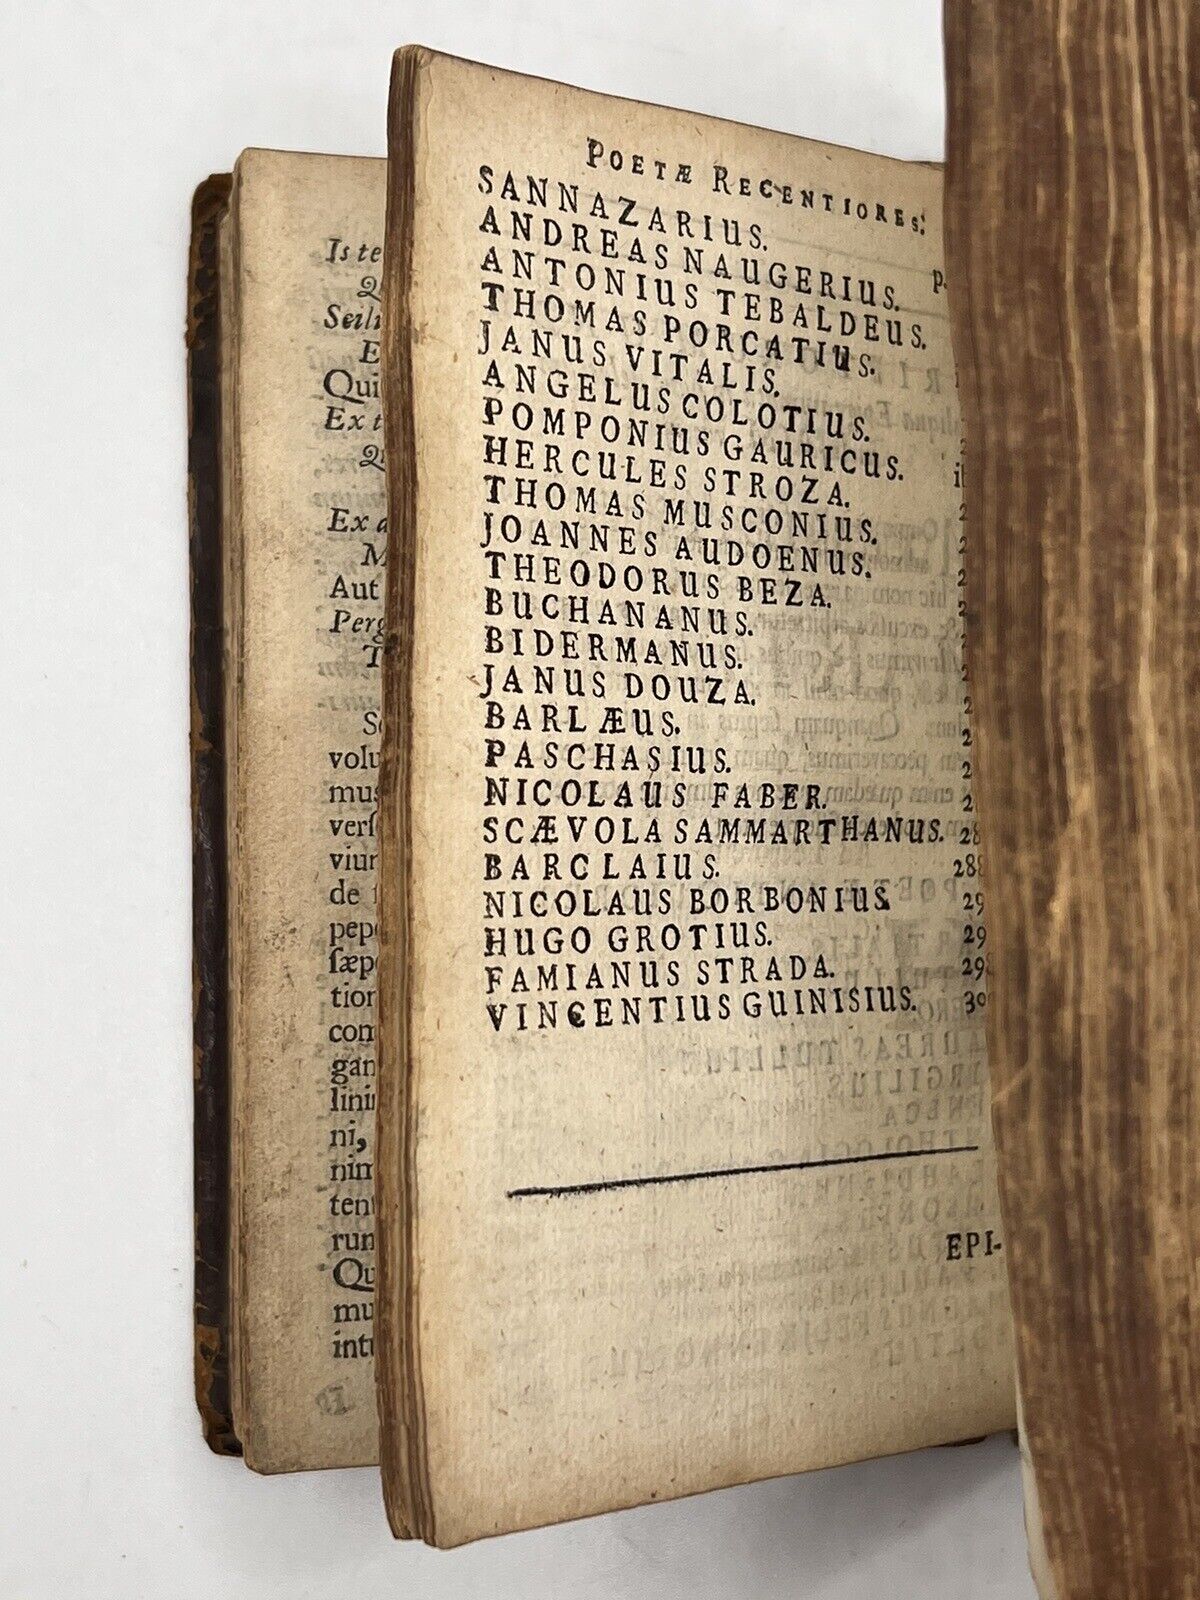 Is te
Seili
E
Qui
Ex t
Ex a
M
Aut
Perg
T
volu
mus
verſ
viun
de
pepe
ſæpe
tion
com
gan
lini
ni,
nim
tent
run
Qu
mu
intu
POETÆ RECENTIORES.
SANNAZARIUS.
ANDREAS NAUGERIUS. p.
ANTONIUS TEBALDEUS.
THOMAS PORCATIUS.
JANUS VITALIS.
ANGELUS COLOTIUS. 2
POMPONIUS GAURICUS. ib
HERCULES STROZA. 2
THOMAS MUSCONIUS. 2
JOANNES AUDOENUS. 2
THEODORUS BEZA. 2
BUCHANANUS. 2
BIDERMANUS. 2
JANUS DOUZA. 2
BARLÆUS. 2
PASCHASIUS. 2
NICOLAUS FABER. 2
SCÆVOLA SAMMARTHANUS. 28
BARCLAIUS. 288
NICOLAUS BORBONIUS. 29
HUGO GROTIUS. 29
FAMIANUS STRADA. 298
VINCENTIUS GUINISIUS. 30
EPI-